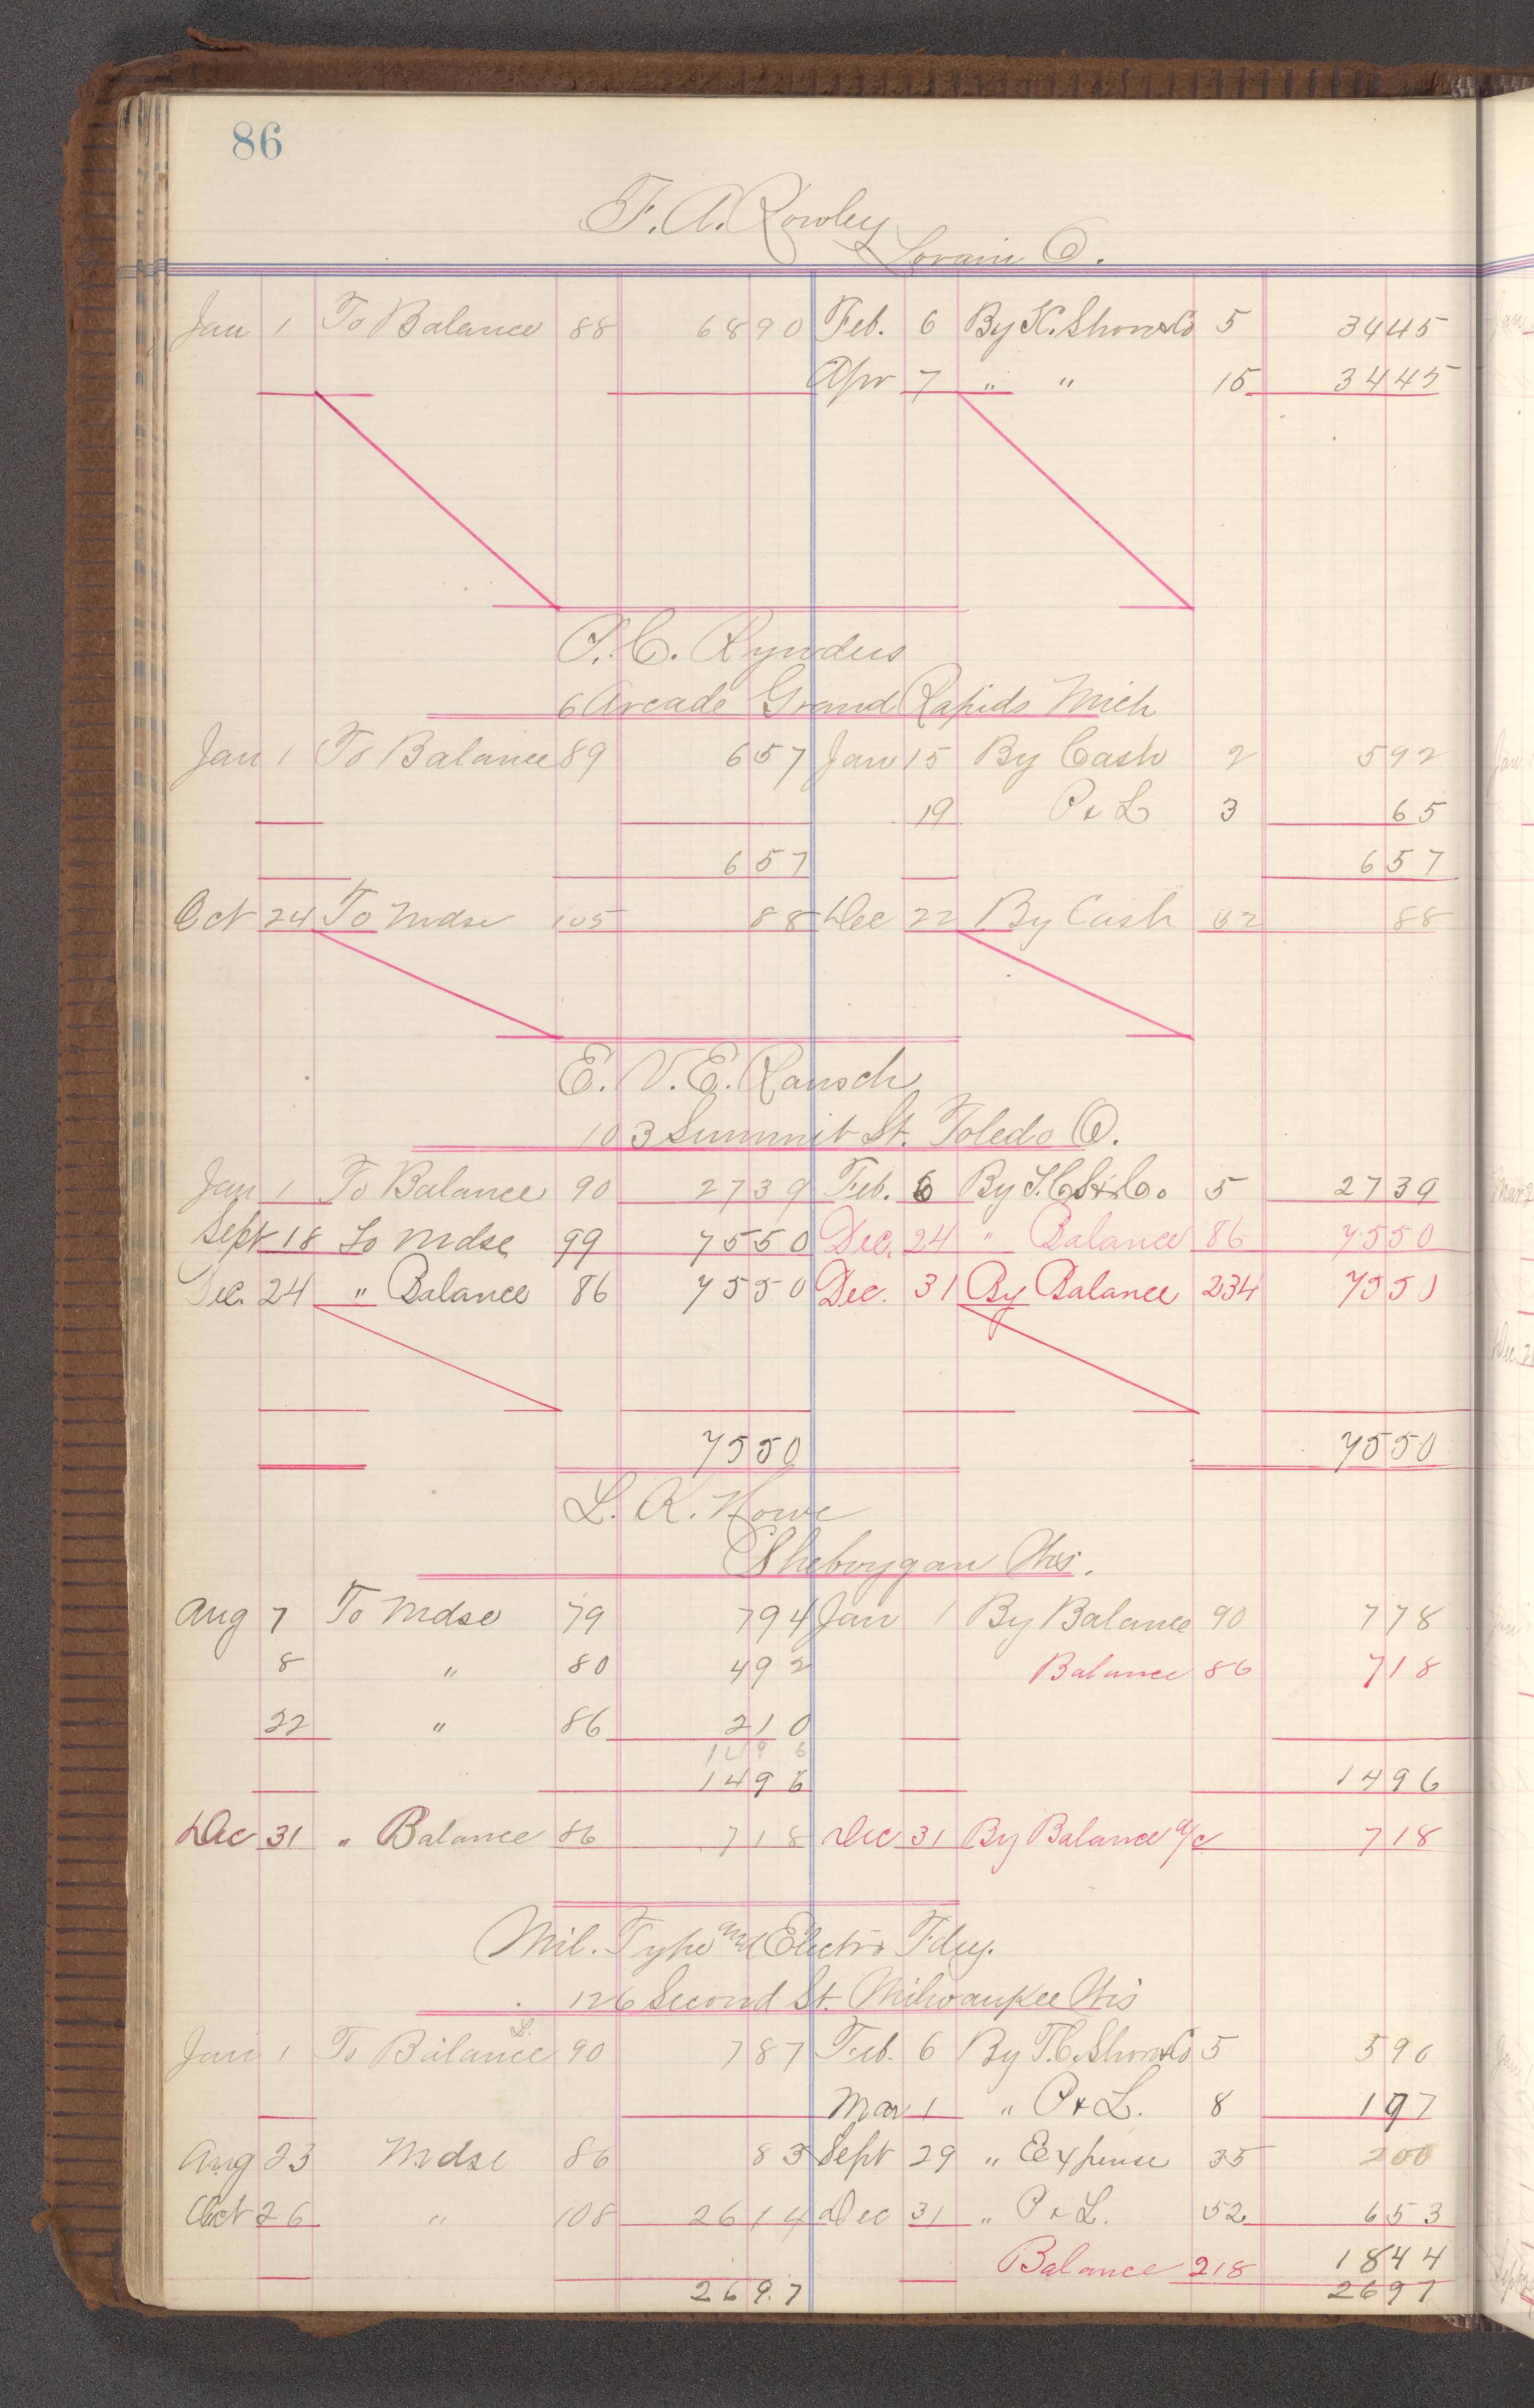 86
F. A. Rowley
Lorain O.
Jan 1 To Balance 88 6890 Feb. 6 By K. Shorr & Co 5 3445
Apr 7 " " 15 3445
P. C. Rynders
6 Arcade Grand Rapids Mich
Jan 1 To Balance 89 657 Jan 15 By Cash 2 592
19 P & L 3 65
657 657
Oct 24 To Mdse 105 88 Dec 22 By Cash 52 88
E. V. E. Rausch
103 Summit St. Toledo O.
Jan 1 To Balance 90 2739 Feb. 6 By & Co. 5 2739
Sept 18 To Mdse 99 7550 Dec. 24 " Balance 86 7550
Dec. 24 " Balance 86 7550 Dec. 31 By Balance 234 7550
7550 7550
L. K. Howe
Sheboygan Wis.
Aug 7 To Mdse 79 794 Jan 1 By Balance 90 778
8 " 80 492 Balance 86 718
22 " 86 210
1496
1496 1496
Dec 31 " Balance 86 718 Dec 31 By Balance a/c 718
Mil. Type and Electro Fdry.
126 Second St. Milwaukee Wis
Jan 1 To Balance 90 787 Feb. 6 By T. C. Shorr & Co 5 590
Mar 1 " P & L. 8 197
Aug 23 Mdse 86 83 Sept 29 " Expense 35 200
Oct 26 " 108 2614 Dec 31 " P & L. 52 653
Balance 218 1844
2697 2697